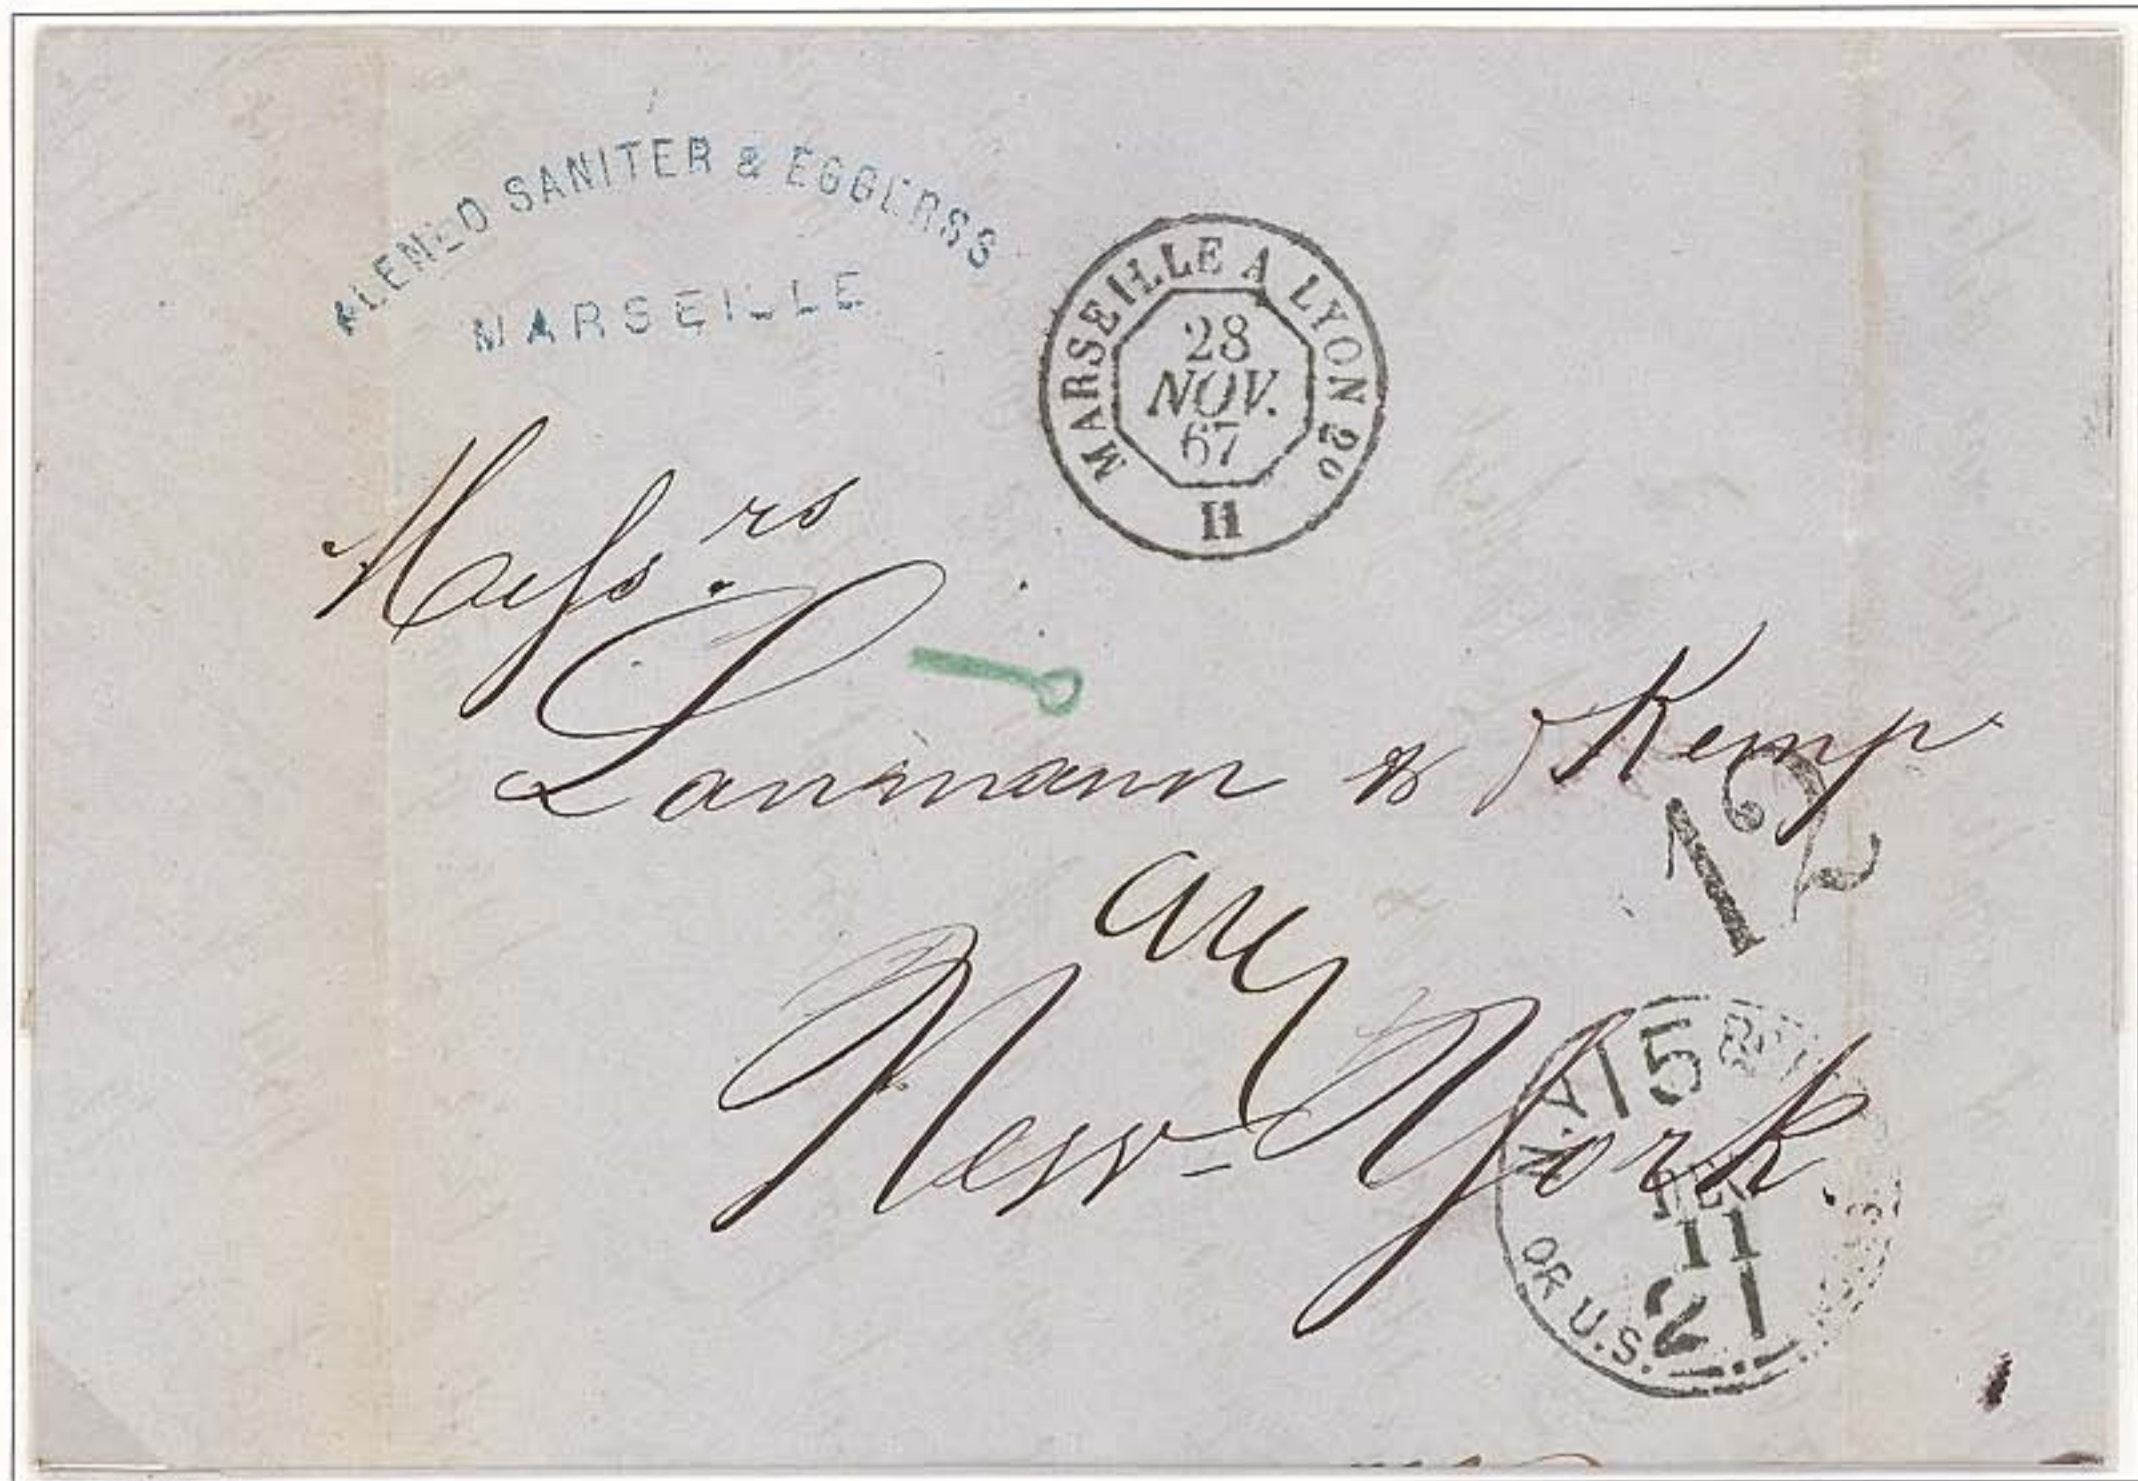 SANITER & EGGERSS
MARSEILLE
MARSEILLE A LYON 2º
28
NOV.
67
II
Mess.rs
Lanmann & Kemp
12
New-York.
N.Y.
15
11
OR U.S.
21